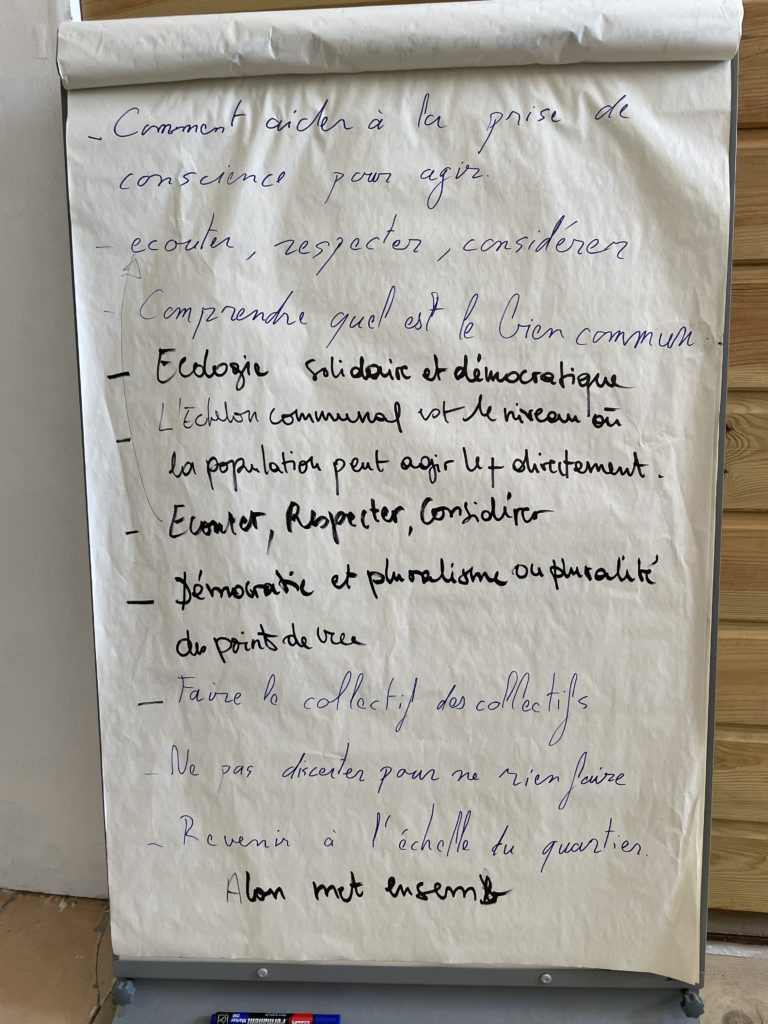 - Comment aider à la prise de
conscience pour agir.
- ecouter, respecter, considérer
- Comprendre quel est le bien commun.
- Ecologie solidaire et démocratique
- L'Echelon communal est le niveau où
la population peut agir le + directement.
- Ecouter, Respecter, Considérer
- Démocratie et pluralisme ou pluralité
des points de vue
- Faire le collectif des collectifs
- Ne pas discuter pour ne rien faire
- Revenir à l'échelle du quartier.
Alon met ensemb
Permanent
Marker